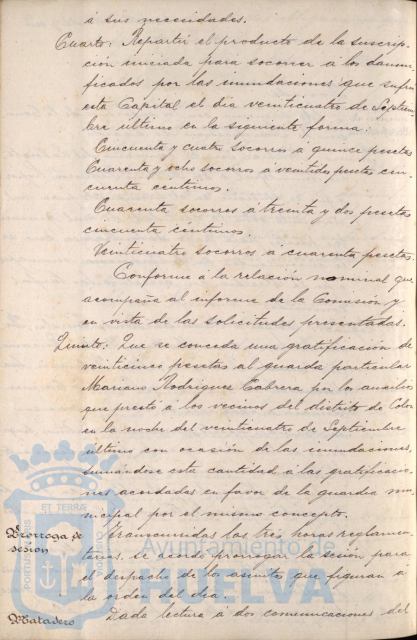 á sus necesidades.
Cuarto: Repartir el producto de la suscrip-
ción iniciada para socorrer á los damni-
ficados por las inundaciones que sufrió
esta Capital el dia veinticuatro de Septiem-
bre último en la siguiente forma:
Cincuenta y cuatro socorros á quince pesetas
Cuarenta y ocho socorros á veintidos pesetas cin-
cuenta centimos.
Cuarenta socorros á treinta y dos pesetas
cincuenta céntimos.
Veinticuatro socorros á cuarenta pesetas.
Conforme á la relación nominal que
acompaña al informe de la Comisión y
en vista de las solicitudes presentadas.
Quinto: Que se conceda una gratificación de
veinticinco pesetas al guarda particular
Mariano Rodriguez Cabrera por los auxilios
que prestó á los vecinos del distrito de Colon
en la noche del veinticuatro de Septiembre
último con ocasión de las inundaciones,
sumándose esta cantidad á las gratificacio-
nes acordadas en favor de la guardia mu-
nicipal por el mismo concepto.
Prorroga de
sesión
Transcurridas las tres horas reglamen-
tarias, se acordó prorrogar la sesión para
el despacho de los asuntos que figuran á
la orden del dia.
Matadero
Dada lectura á dos comunicaciones del
ET TERRÆ
PORTUS MARIS
CUSTODIA
Ayuntamiento de
HUELVA